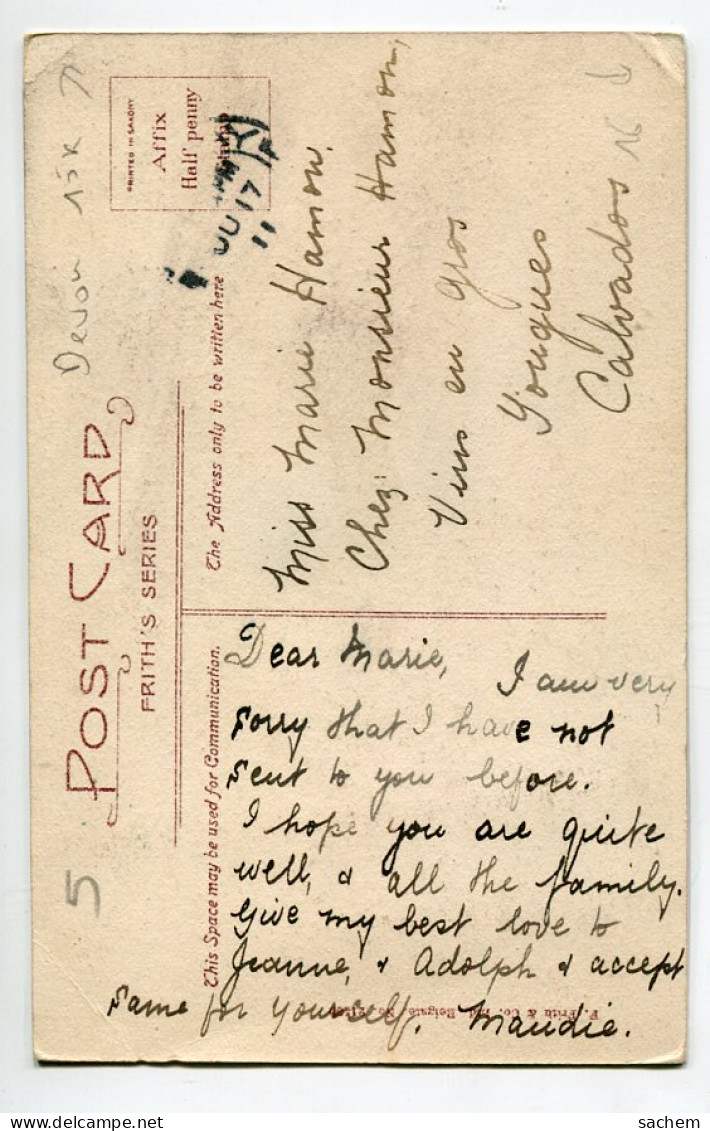 POST CARD
FRITH'S SERIES
Devon 15k
5
PRINTED IN SAXONY
Affix
Half penny
Stamp
JU 17
11
This Space may be used for Communication.
The Address only to be written here
Dear Marie,
I am very
sorry that I have not
sent to you before.
I hope you are quite
well, & all the family.
Give my best love to
Jeanne, & Adolph & accept
same for yourself. Maudie.
Miss Marie Hamon.
Chez Monsieur Hamon,
Vins en gros
Yougues
Calvados
16
F. Frith & Co. Ltd Reigate
sachem